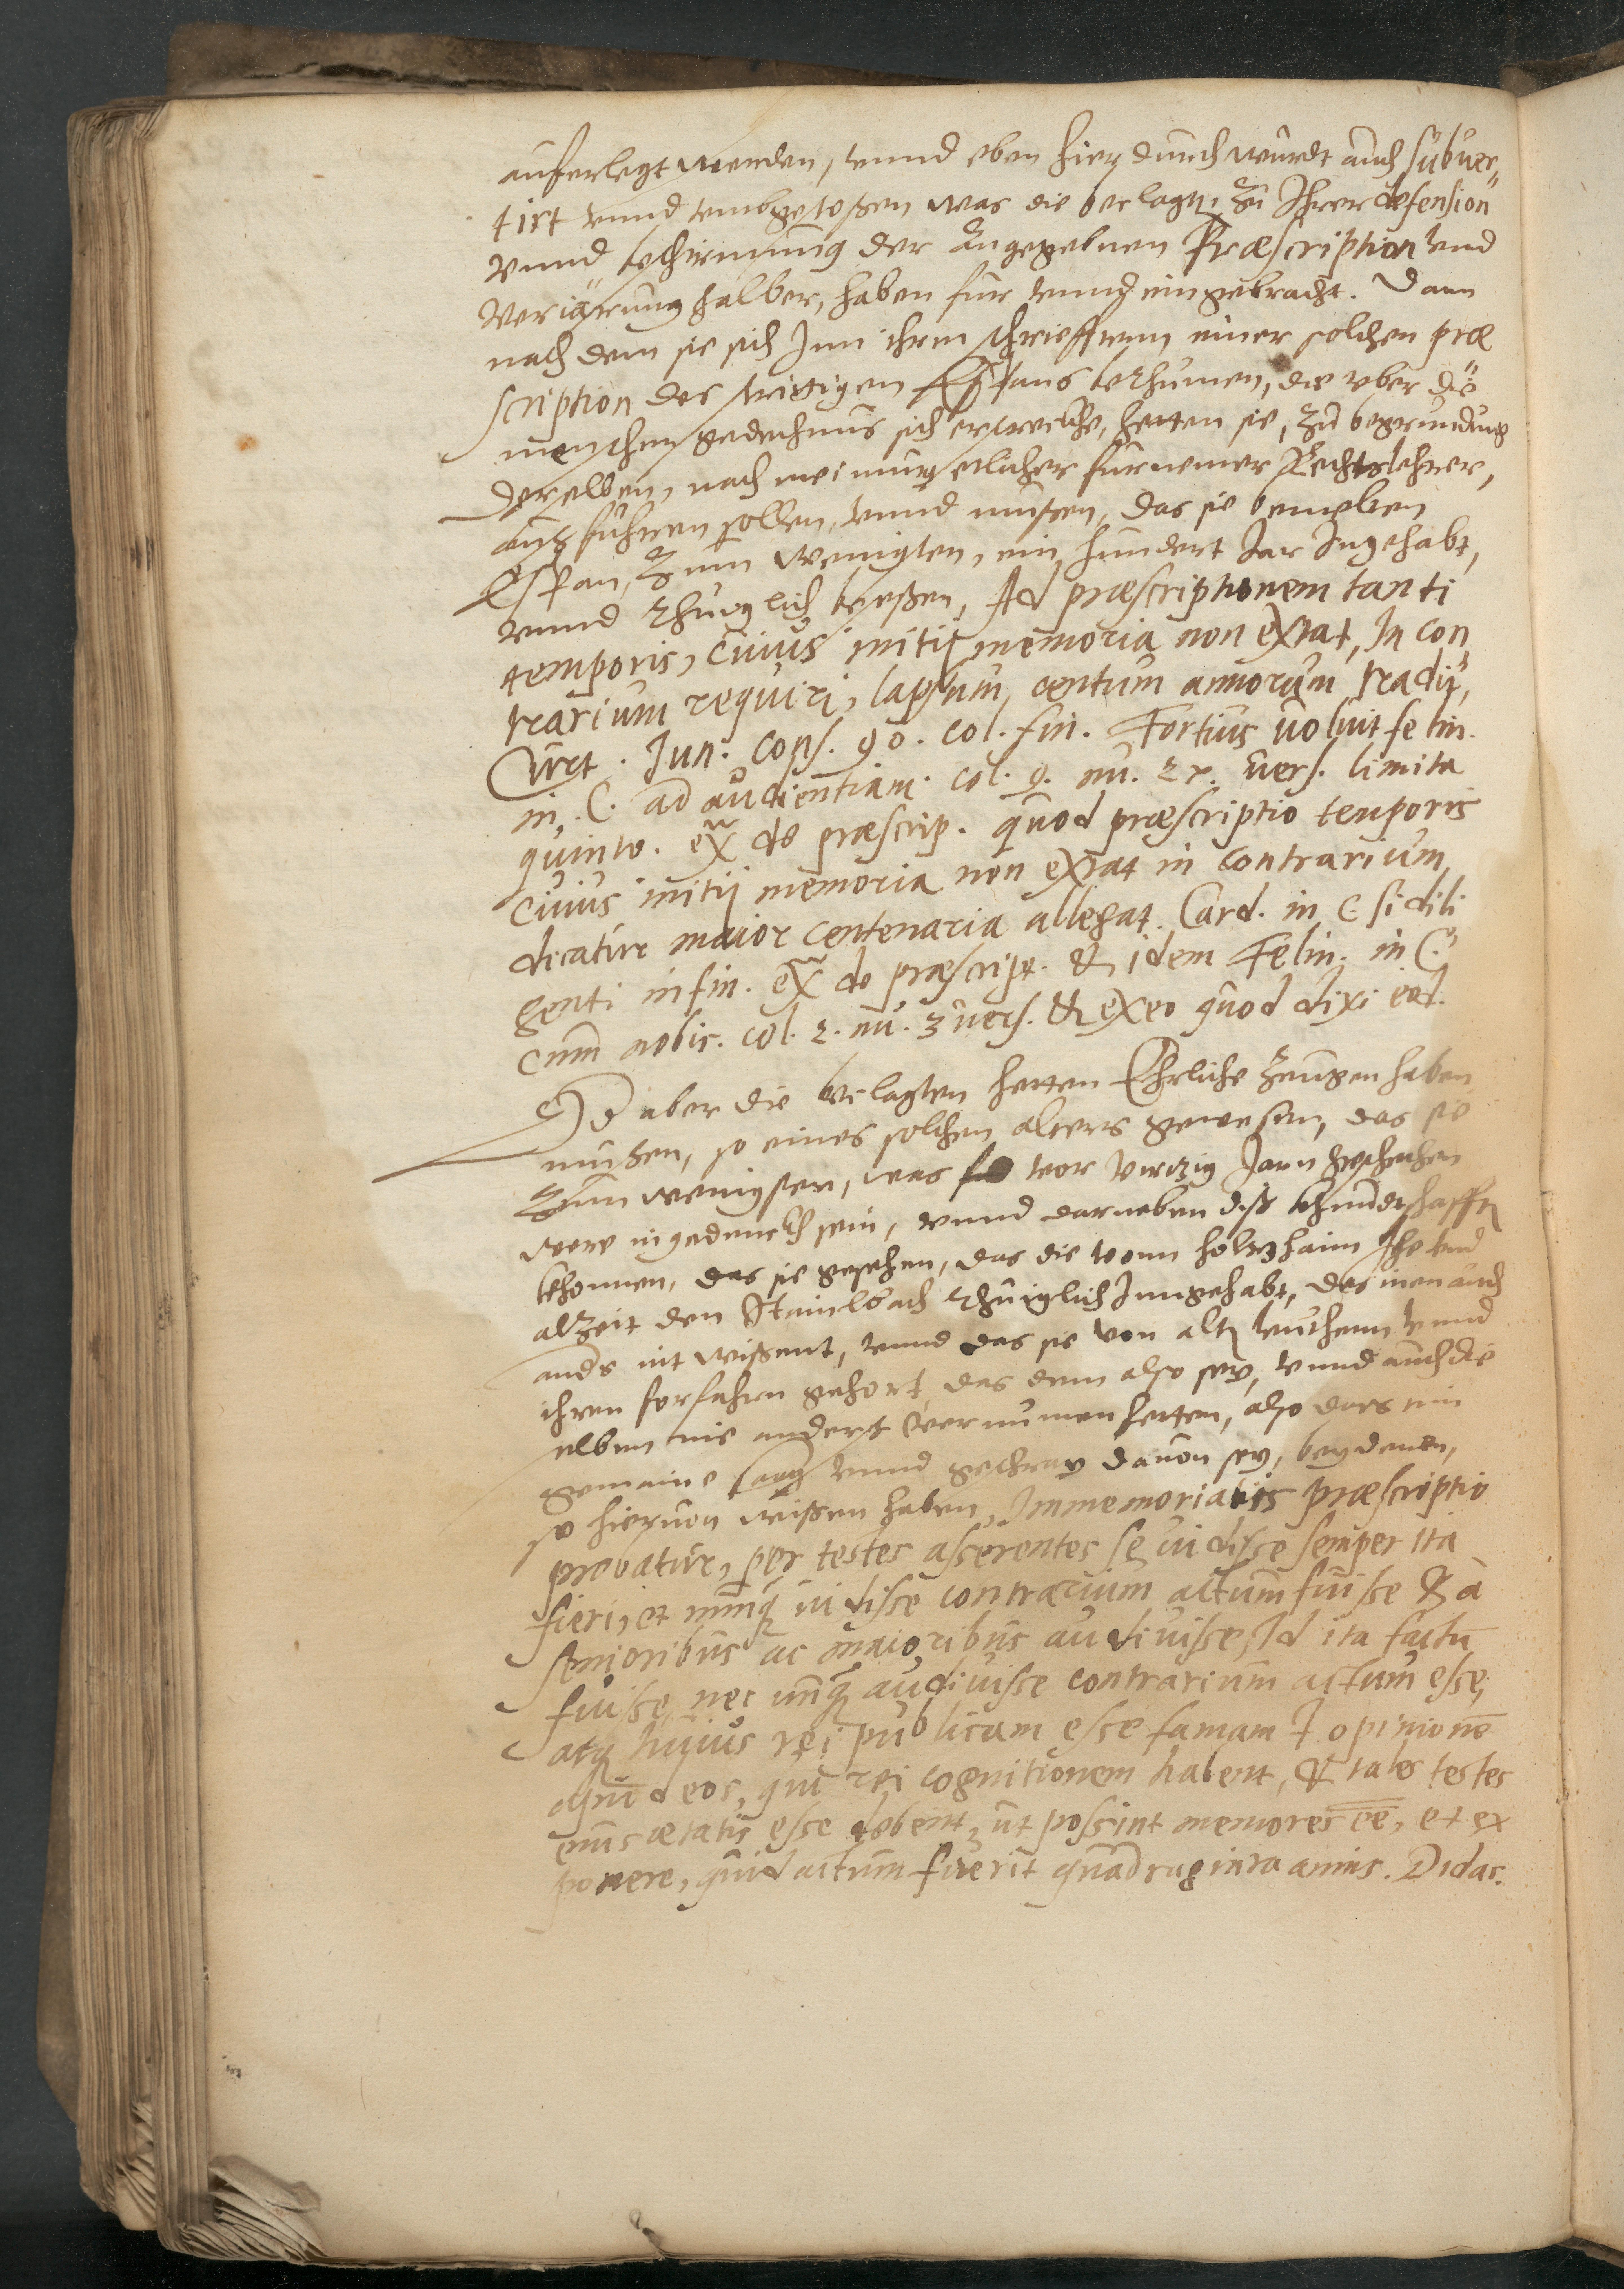 aufferlegt werden, vnnd eben hierdurch würdt auch subuer„
tirt vnnd vmbgestoßen was die beclagtn, zu Ihrer defension
vnnd beschirmung der angegebnen Præscription vnd
veriärung halber, haben für vnnd eingebracht. Dann
nach dem sie sich Inn ihren schrifften einer solchen præ
scription des strittigen Espans berhümen, die vber die
menschen gedechtnus sich erstrecke, hetten sie, zu begründung
derselben, nach meinung etlicher fürnemer Rechtslehrer,
außführen sollen, vnnd müßen, das sie bemelten
Espan, zum wenigsten, ein hundert Jar Ingehabt,
vnnd rhüwglich beseßen, Ad præscriptionem tanti
temporis, cuius initij memoria non extat, In con
trarium requiri, lapsum, centum annorum tradit,
Curt. Jun. Cons. 90. col. fin. Fortius uoluit felin.
in. C. ad audientiam. col. 9. nu. 21. uers. limita
quinto. ex de præscrip. quod præscriptio temporis
cuius initij memoria non extat in contrarium,
dicatur maior centenaria allegat. Card. in C. si dili
genti in fin. ex de præscript. & idem Felin. in C.
cum nobis. col. 2. nu. 3 uers. & ex eo quod dixi eod.
Od aber die beclagten hetten Ehrliche zeugen haben
müßen, so eines solchen alters gewesen, das sie
zum wenigsten, was vor viertzig Jarn geschehen
were ingedenckh sein, vnnd darneben diße khundtschafft
khonnen, das sie gesehen, das die vonn holtzhaim Ihe vnd
alzeit den Stainlbach rhüiglich Inngehabt, das inen auch
anders nit wißent, vnnd das sie von altn leuthenn vnnd
ihren forfahrn gehort, das dem also sey, vnnd auch die
selben nie anderst vernumen hetten, also dars ein
gemaine sag vnnd geschray dauon sey, bey denen,
so hieruon wißen haben, Immemorialis præscriptio
probatur, per testes asserentes se uidisse semper ita
fieri, et nunq uidisse contrarium actum fuisse & a
senioribus ac maioribus audiuisse, Id ita factu
fuisse, nec unq audiuisse contrarium actum esse,
atq huius rei publicam esse famam & opinione
apud eos, qui rei cognitionem habent, & tales testes
eius ætatis esse debent, ut possint memores ee, et ex
ponere, quid actum fuerit quadraginta annis. Didac.